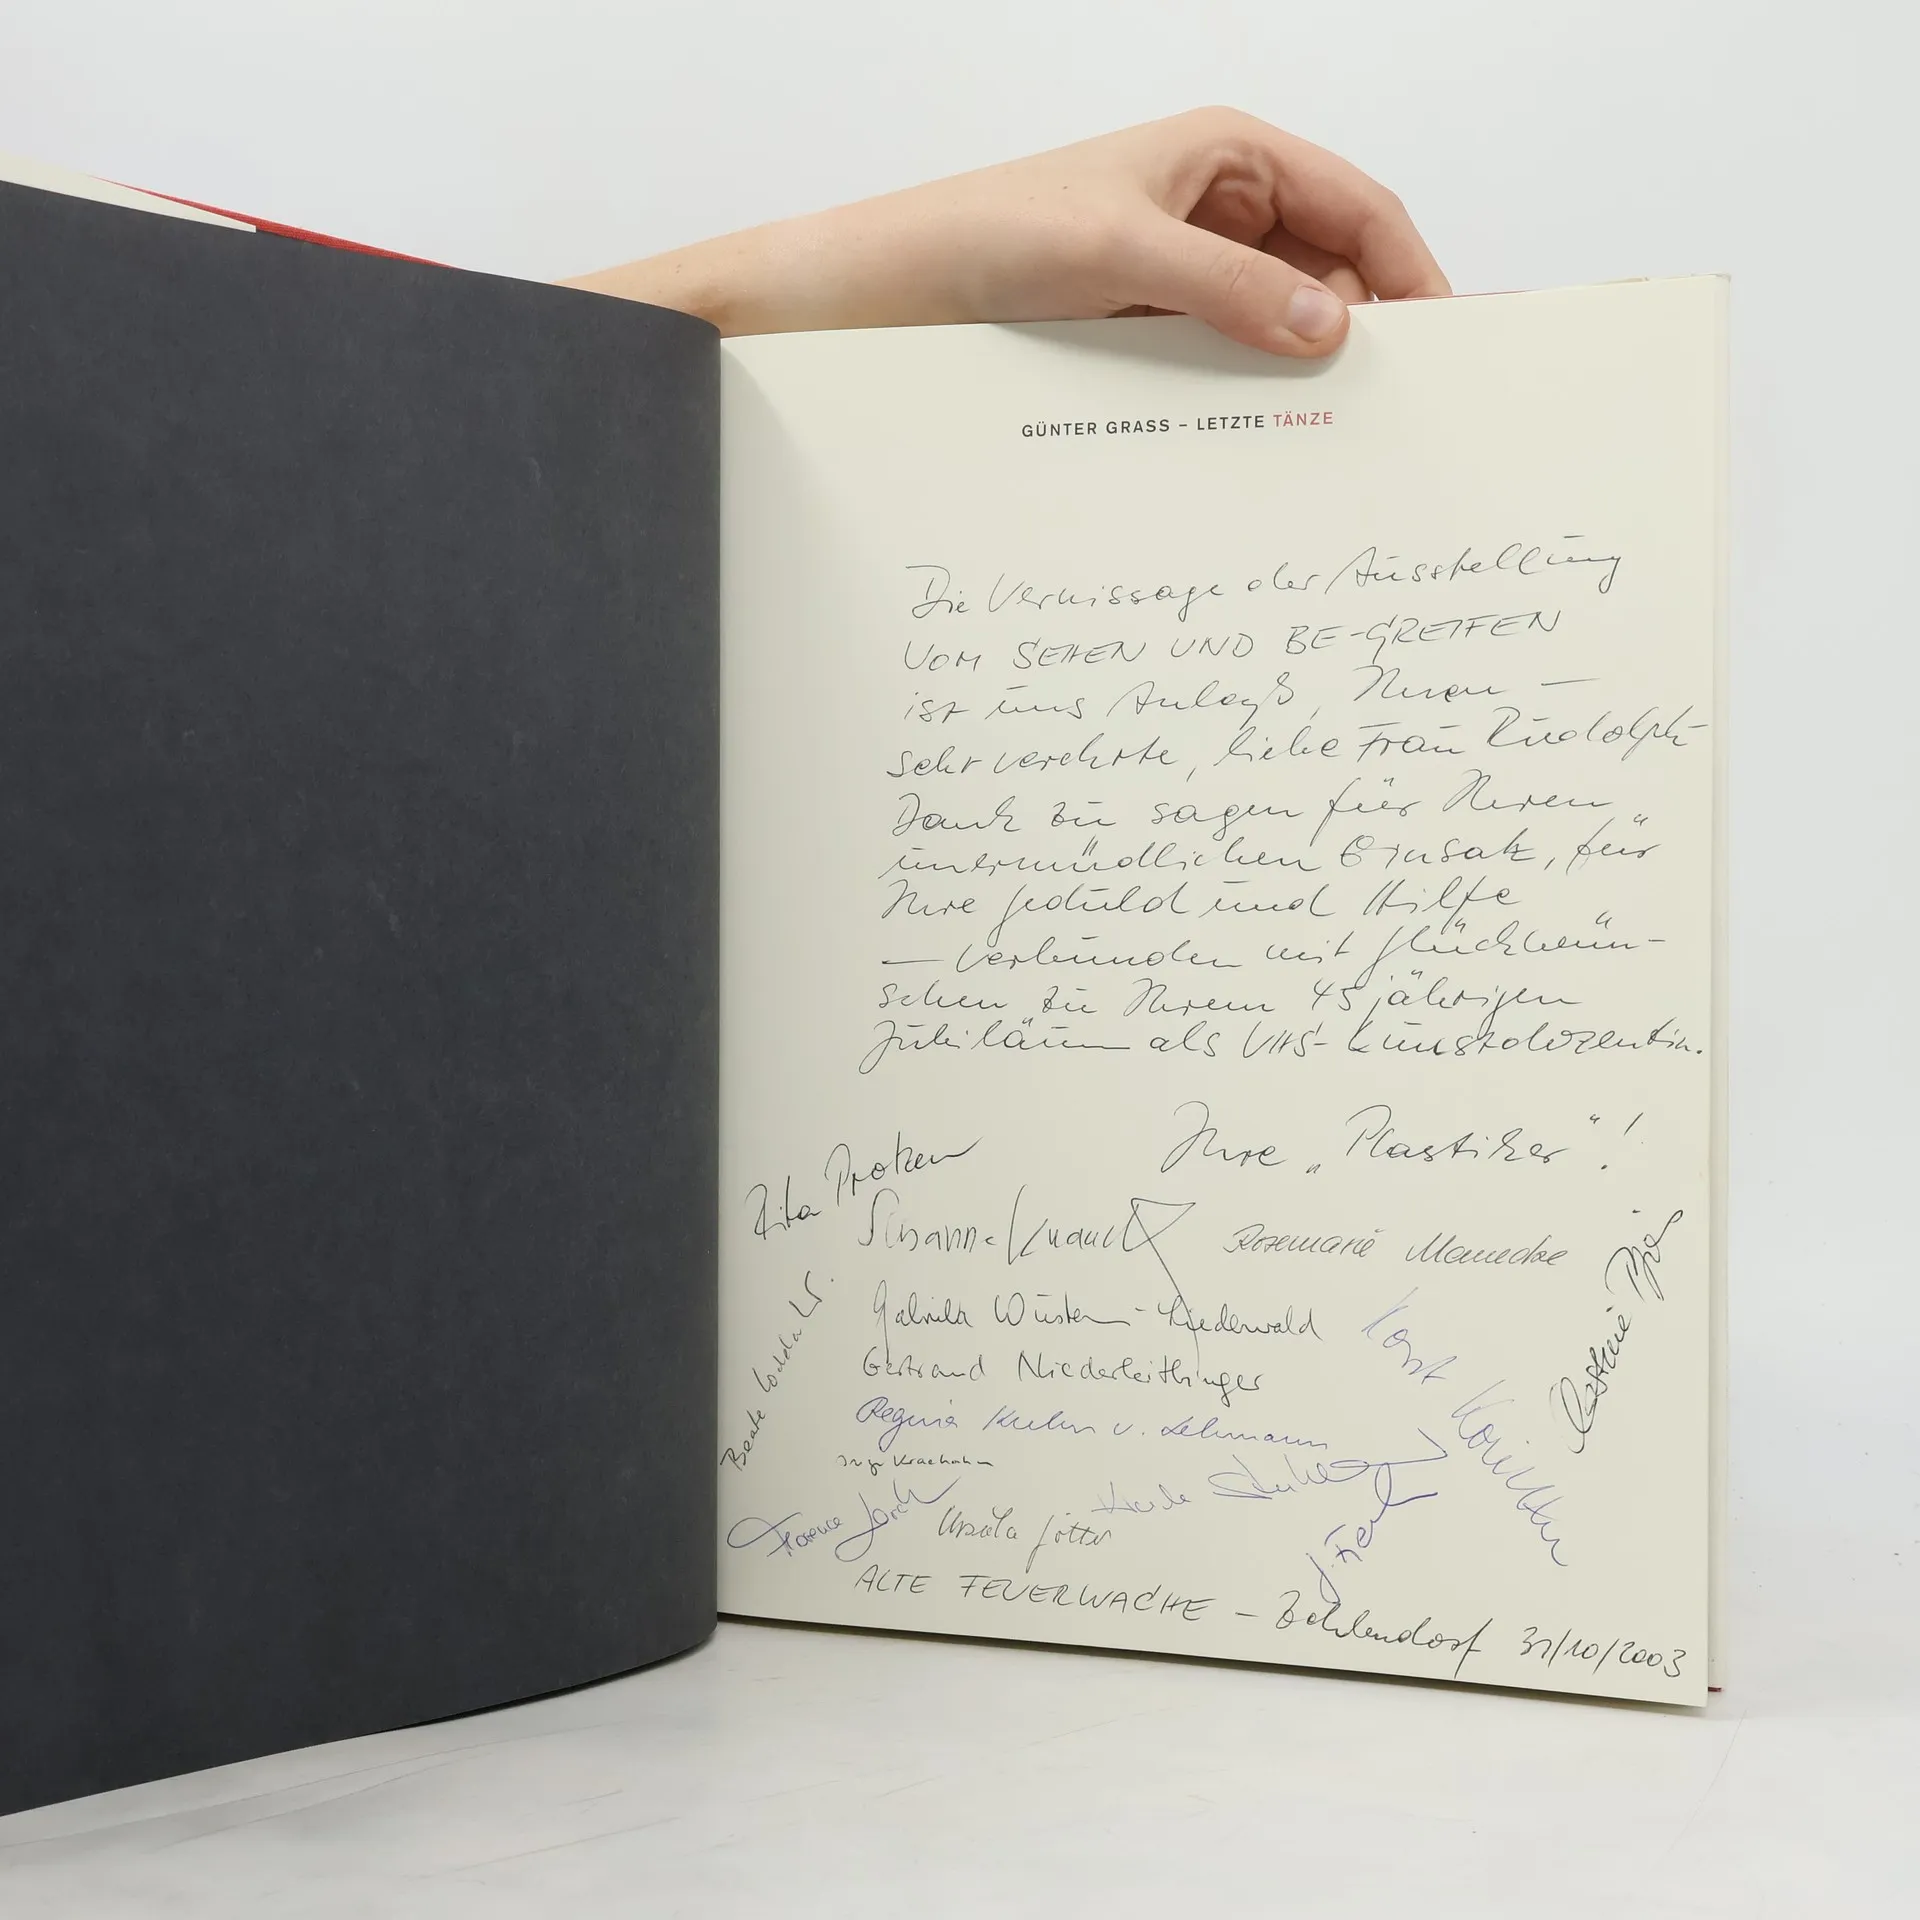 GÜNTER GRASS – LETZTE TÄNZE
Die Vernissage der Ausstellung
VOM SEHEN UND BE-GREIFEN
ist uns Anlaß, Ihnen –
sehr verehrte, liebe Frau Rudolph
Dank zu sagen für Ihren
unermüdlichen Einsatz, für
Ihre Geduld und Hilfe
– verbunden mit Glückwün-
schen zu Ihrem 45 jährigen
Jubiläum als VHS-Kunstdozentin.
Ihre „Plastiker“!
Rita Proken
Susanne Knauck
Rosemarie
Gabriela Wüstem-Liederwald
Gertraud Niederleithinger
Horst
Beate
Regina Kuhn v. Lehmann
Inge Kraehahn
Florence
Ursula Götter
J.
ALTE FEUERWACHE – Zehlendorf 31/10/2003